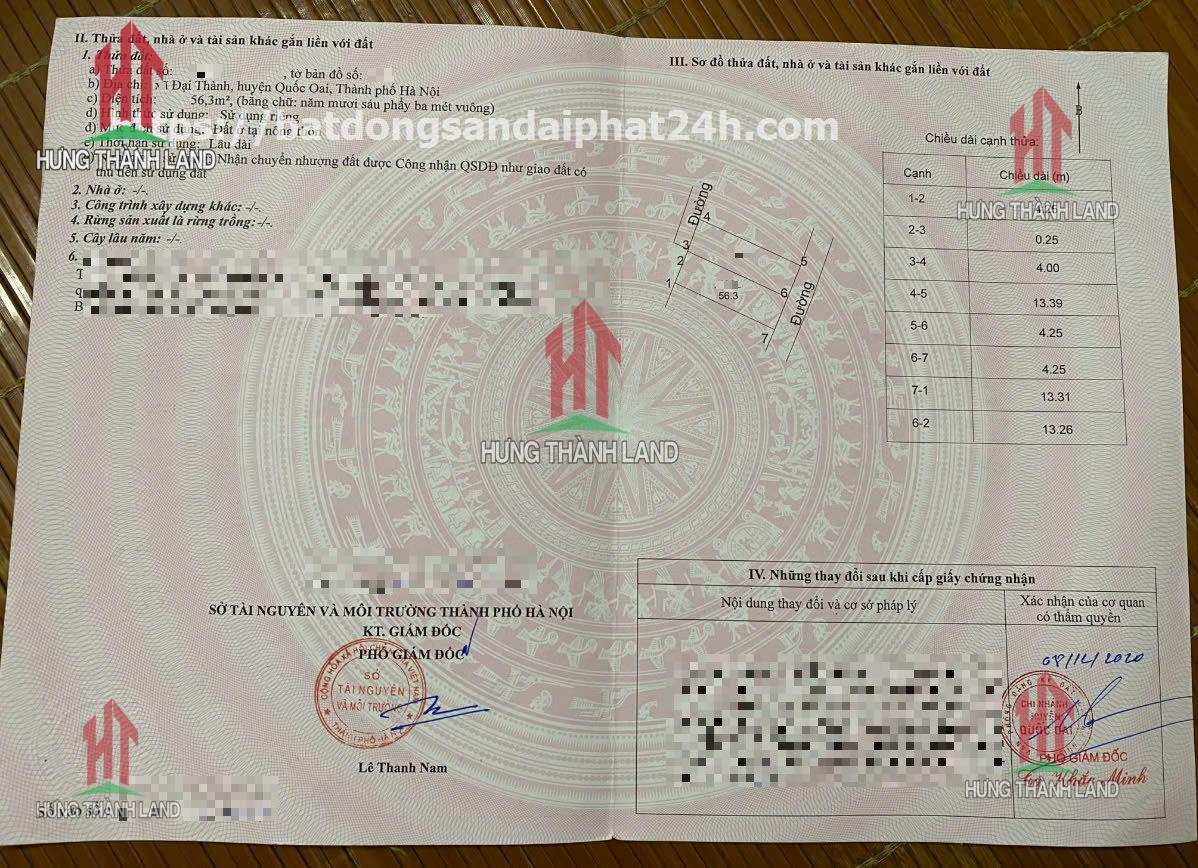 II. Thửa đất, nhà ở và tài sản khác gắn liền với đất
1. Thửa đất:
a) Thửa đất số: , tờ bản đồ số:
b) Địa chỉ: Đại Thành, huyện Quốc Oai, Thành phố Hà Nội
c) Diện tích: 56,3m², (bằng chữ: năm mươi sáu phẩy ba mét vuông)
d) Hình thức sử dụng: Sử dụng riêng
đ) Mục đích sử dụng: Đất ở tại nông thôn
batdongsandaiphat24h.com
e) Thời hạn sử dụng: Lâu dài
HƯNG THÀNH LAND
Nhận chuyển nhượng đất được Công nhận QSDĐ như giao đất có
thu tiền sử dụng đất
2. Nhà ở: -/-.
3. Công trình xây dựng khác: -/-.
4. Rừng sản xuất là rừng trồng: -/-.
5. Cây lâu năm: -/-.
6.
T
q
B
HƯNG THÀNH LAND
SỞ TÀI NGUYÊN VÀ MÔI TRƯỜNG THÀNH PHỐ HÀ NỘI
KT. GIÁM ĐỐC
PHÓ GIÁM ĐỐC
CỘNG HÒA XÃ HỘI CHỦ NGHĨA VIỆT NAM
SỞ
TÀI NGUYÊN
VÀ MÔI TRƯỜNG
THÀNH PHỐ HÀ NỘI
Lê Thanh Nam
HƯNG THÀNH LAND
III. Sơ đồ thửa đất, nhà ở và tài sản khác gắn liền với đất
B
Chiều dài cạnh thửa:
Cạnh Chiều dài (m)
1-2
HƯNG THÀNH LAND
2-3 0.25
3-4 4.00
4-5 13.39
5-6 4.25
6-7 4.25
7-1 13.31
6-2 13.26
Đường
4
3
2
5
1
6
56.3
Đường
7
IV. Những thay đổi sau khi cấp giấy chứng nhận
Nội dung thay đổi và cơ sở pháp lý
Xác nhận của cơ quan
có thẩm quyền
08/12/2020
CHI NHÁNH
HUYỆN
QUỐC OAI
PHÓ GIÁM ĐỐC
Khắc Minh
HƯNG THÀNH LAND